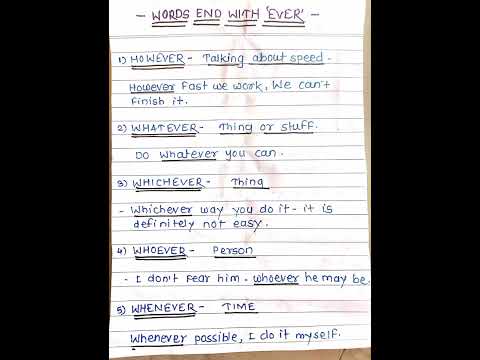 - WORDS END WITH 'EVER' -
1) HOWEVER - Talking about speed.
However Fast we work, We can't
finish it.
2) WHATEVER - Thing or stuff.
Do whatever you can.
3) WHICHEVER - Thing
- Whichever way you do it - it is
definitely not easy.
4) WHOEVER - Person
- I don't fear him. whoever he may be.
5) WHENEVER - TIME
Whenever possible, I do it myself.